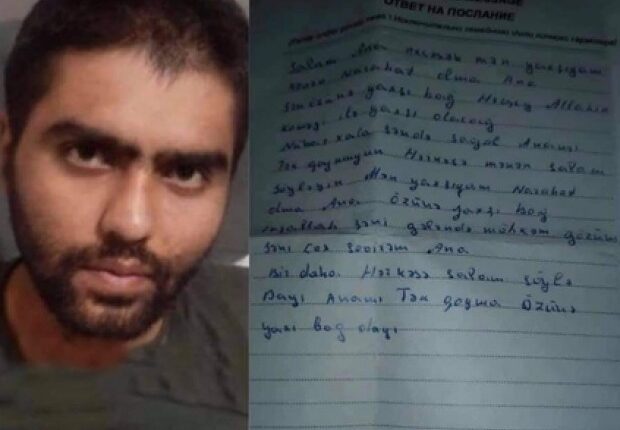 ОТВЕТ НА ПОСЛАНИЕ
Salam Ana mən yaxşıyam
Narahat olma Ana
yaxşı bağ Hərşey Allahın
köməyi ilə yaxşı olacağ
xala səndə sağol Anamı
Tək qoymuyun Hərkəsə məndən salam
Söyləyin Mən yaxşıyam Narahat
olma Ana. Özünə yaxşı bağ
inşallah səni gələndə möhkəm
Səni Çox Sevirəm Ana
Bir daha Hərkəsə Salam Söylə
Dayı Anamı Tək qoyma Özünə
yaxı bağ